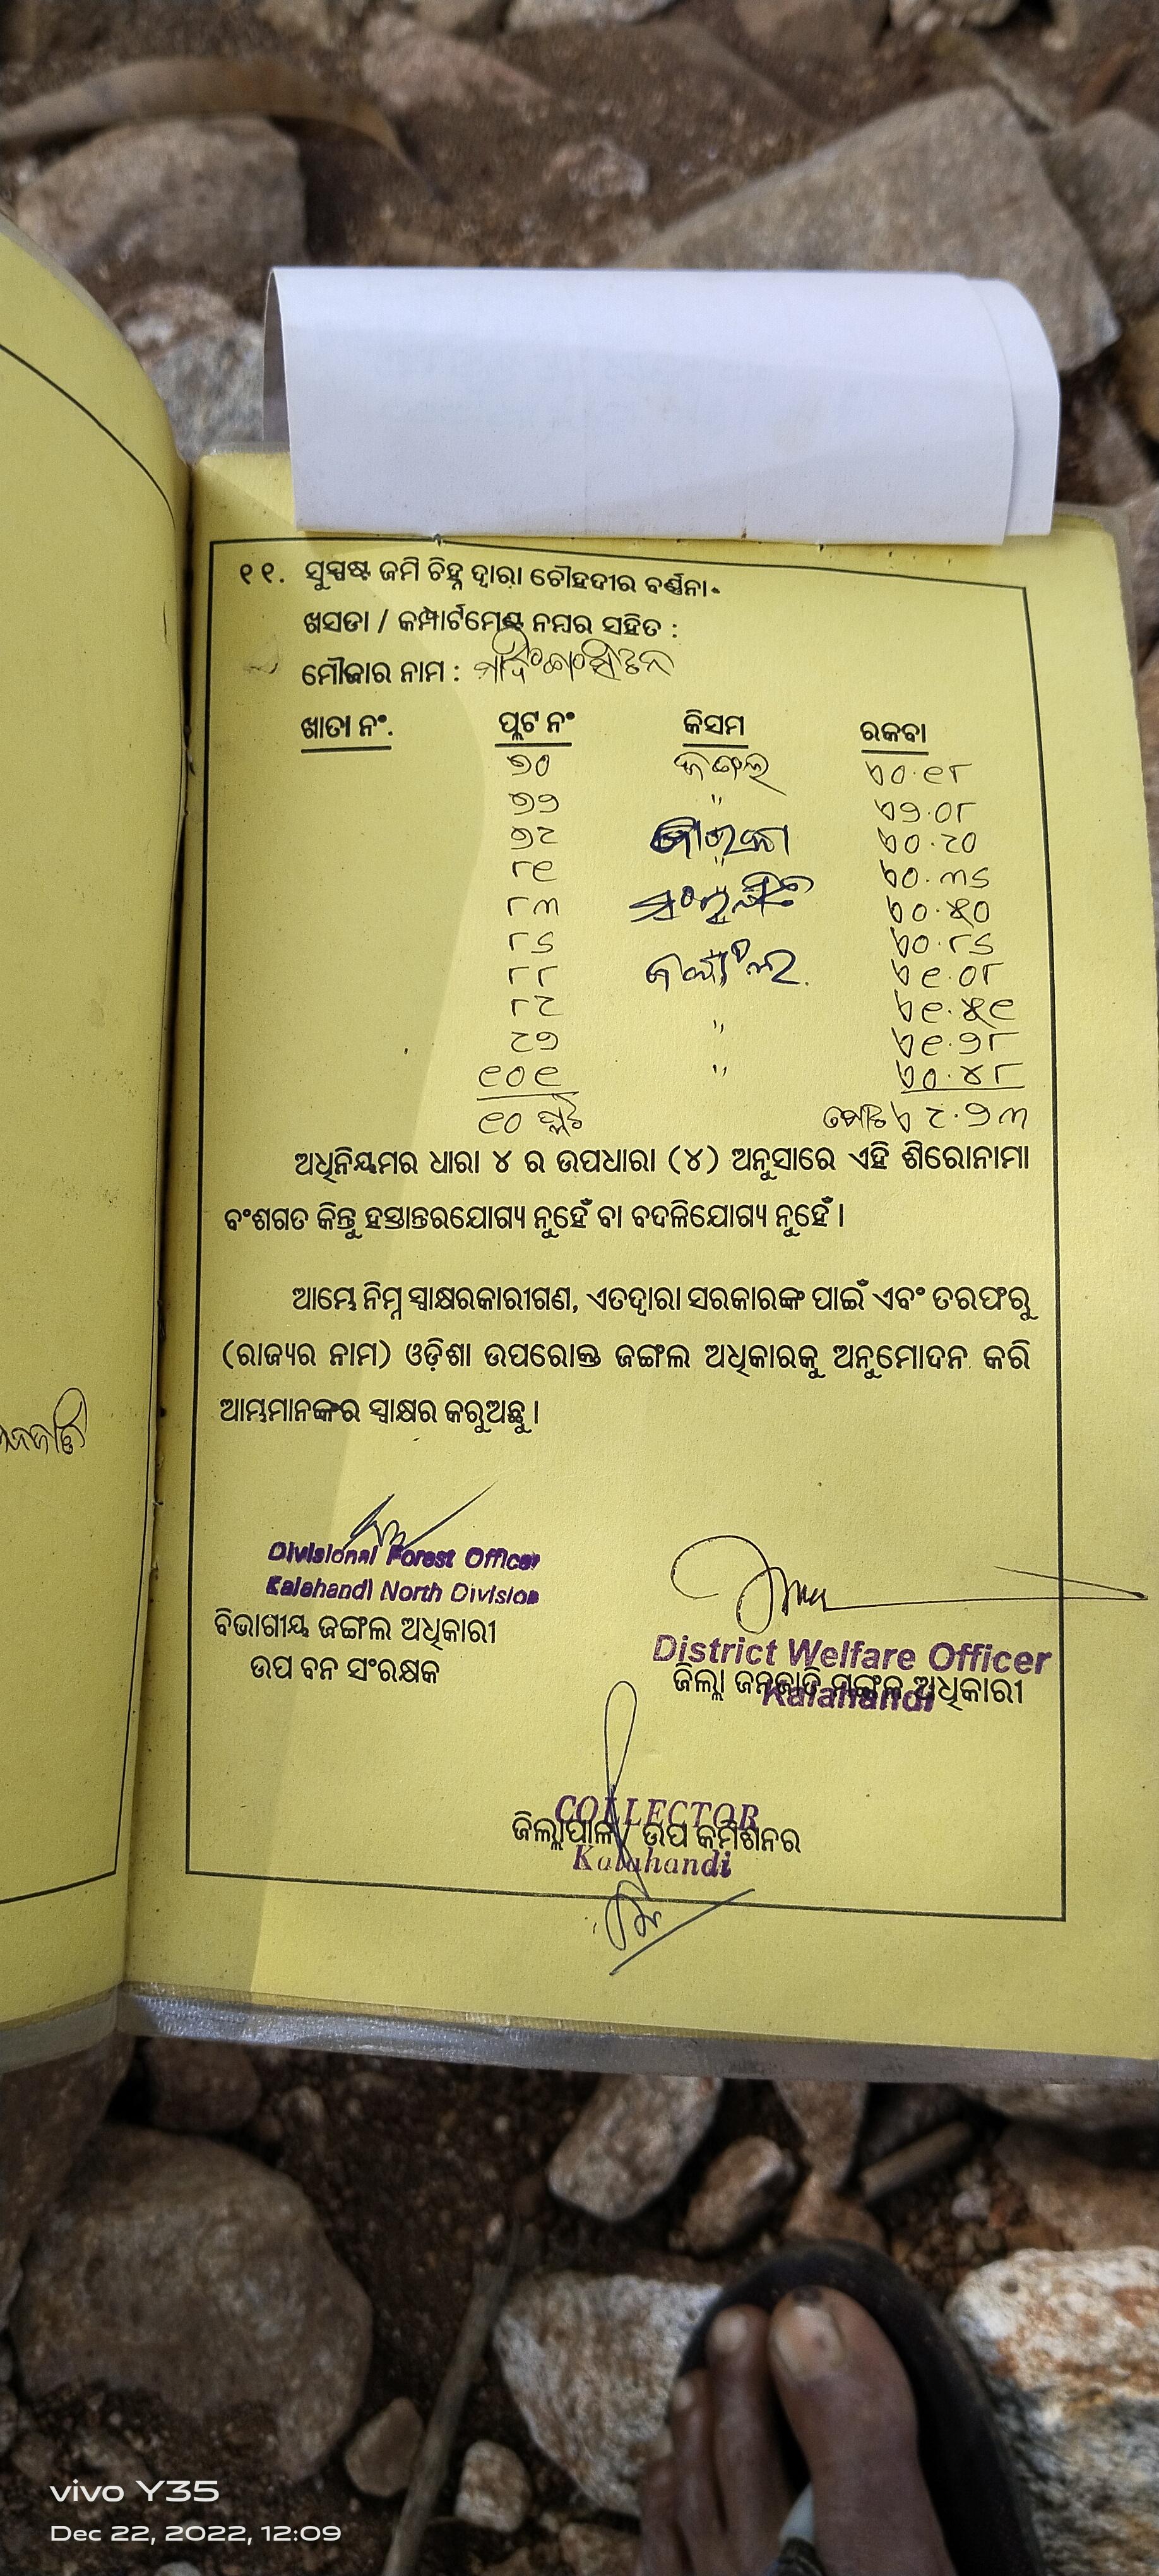 ୧୧. ସୁସ୍ପଷ୍ଟ ଜମି ଚିହ୍ନ ଦ୍ୱାରା ଚୌହଦୀର ବର୍ଣ୍ଣନା-
ଖସଡା / କମ୍ପାର୍ଟମେଣ୍ଟ ନମ୍ବର ସହିତ :
ମୌଜାର ନାମ :
ଖାତା ନଂ. ପ୍ଲଟ ନଂ କିସମ ରକବା
୭୦ ଜଙ୍ଗଲ ୦.୧୮
୭୨ " ୨.୦୮
୭୯ ୦.୯୦
୮୧ " ୦.୩୫
୮୩ ୦.୫୦
୮୫ ୦.୮୫
୮୮ ୧.୦୮
୮୯ ୧.୫୧
୯୭ " ୧.୨୮
୧୦୧ " ୦.୪୮
୧୦ ପ୍ଲଟ ମୋଟ ୯.୨୩
ଅଧିନିୟମର ଧାରା ୪ ର ଉପଧାରା (୪) ଅନୁସାରେ ଏହି ଶିରୋନାମା
ବଂଶଗତ କିନ୍ତୁ ହସ୍ତାନ୍ତରଯୋଗ୍ୟ ନୁହେଁ ବା ବଦଳିଯୋଗ୍ୟ ନୁହେଁ ।
ଆମ୍ଭେ ନିମ୍ନ ସ୍ୱାକ୍ଷରକାରୀଗଣ, ଏତଦ୍ୱାରା ସରକାରଙ୍କ ପାଇଁ ଏବଂ ତରଫରୁ
(ରାଜ୍ୟର ନାମ) ଓଡ଼ିଶା ଉପରୋକ୍ତ ଜଙ୍ଗଲ ଅଧିକାରକୁ ଅନୁମୋଦନ କରି
ଆମ୍ଭମାନଙ୍କର ସ୍ୱାକ୍ଷର କରୁଅଛୁ ।
Divisional Forest Officer
Kalahandi North Division
ବିଭାଗୀୟ ଜଙ୍ଗଲ ଅଧିକାରୀ
ଉପ ବନ ସଂରକ୍ଷକ
District Welfare Officer
ଜିଲ୍ଲା ଜନଜାତି ମଙ୍ଗଳ ଅଧିକାରୀ
Kalahandi
COLLECTOR
ଜିଲ୍ଲାପାଳ / ଉପ କମିଶନର
Kalahandi
vivo Y35
Dec 22, 2022, 12:09